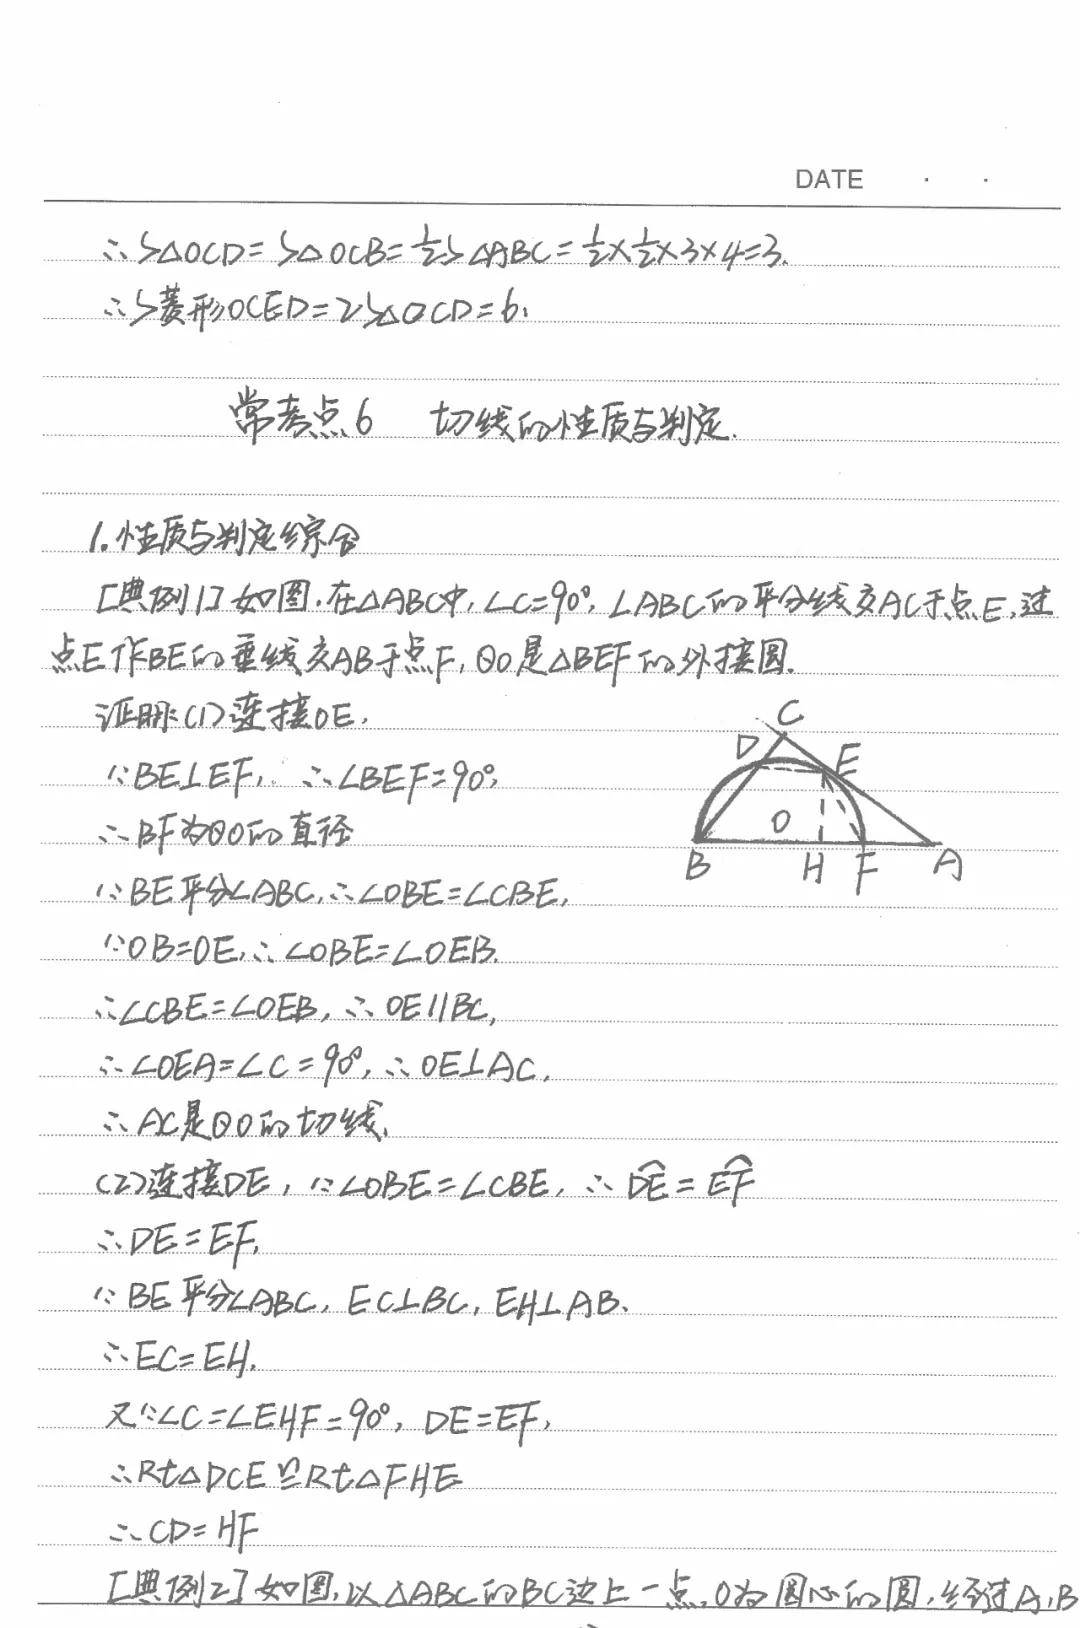 DATE
∴S△OCD=S△OCB=½S△ABC=½×½×3×4=3.
∴S菱形OCED=2S△OCD=6.
常考点6 切线的性质与判定.
1.性质与判定综合
[典例1]如图.在△ABC中,∠C=90°,∠ABC的平分线交AC于点E,过
点E作BE的垂线交AB于点F,⊙O是△BEF的外接圆.
证明:(1)连接OE,
∵BE⊥EF, ∴∠BEF=90°,
∴BF为⊙O的直径
∵BE平分∠ABC,∴∠OBE=∠CBE,
∵OB=OE,∴∠OBE=∠OEB.
∴∠CBE=∠OEB, ∴OE∥BC,
∴∠OEA=∠C=90°,∴OE⊥AC,
∴AC是⊙O的切线,
C
D
E
O
B
H
F
A
(2)连接DE, ∵∠OBE=∠CBE, ∴D͡E=E͡F
∴DE=EF,
∵BE平分∠ABC, EC⊥BC, EH⊥AB.
∴EC=EH.
又∵∠C=∠EHF=90°, DE=EF,
∴Rt△DCE≌Rt△FHE
∴CD=HF
[典例2]如图,以△ABC的BC边上一点,O为圆心的圆,经过A,B